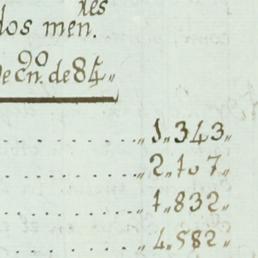 res
dos men.
de En.º de 84„
„ 1„343„
„ 2„107„
„ 1„832„
„ 4„582„